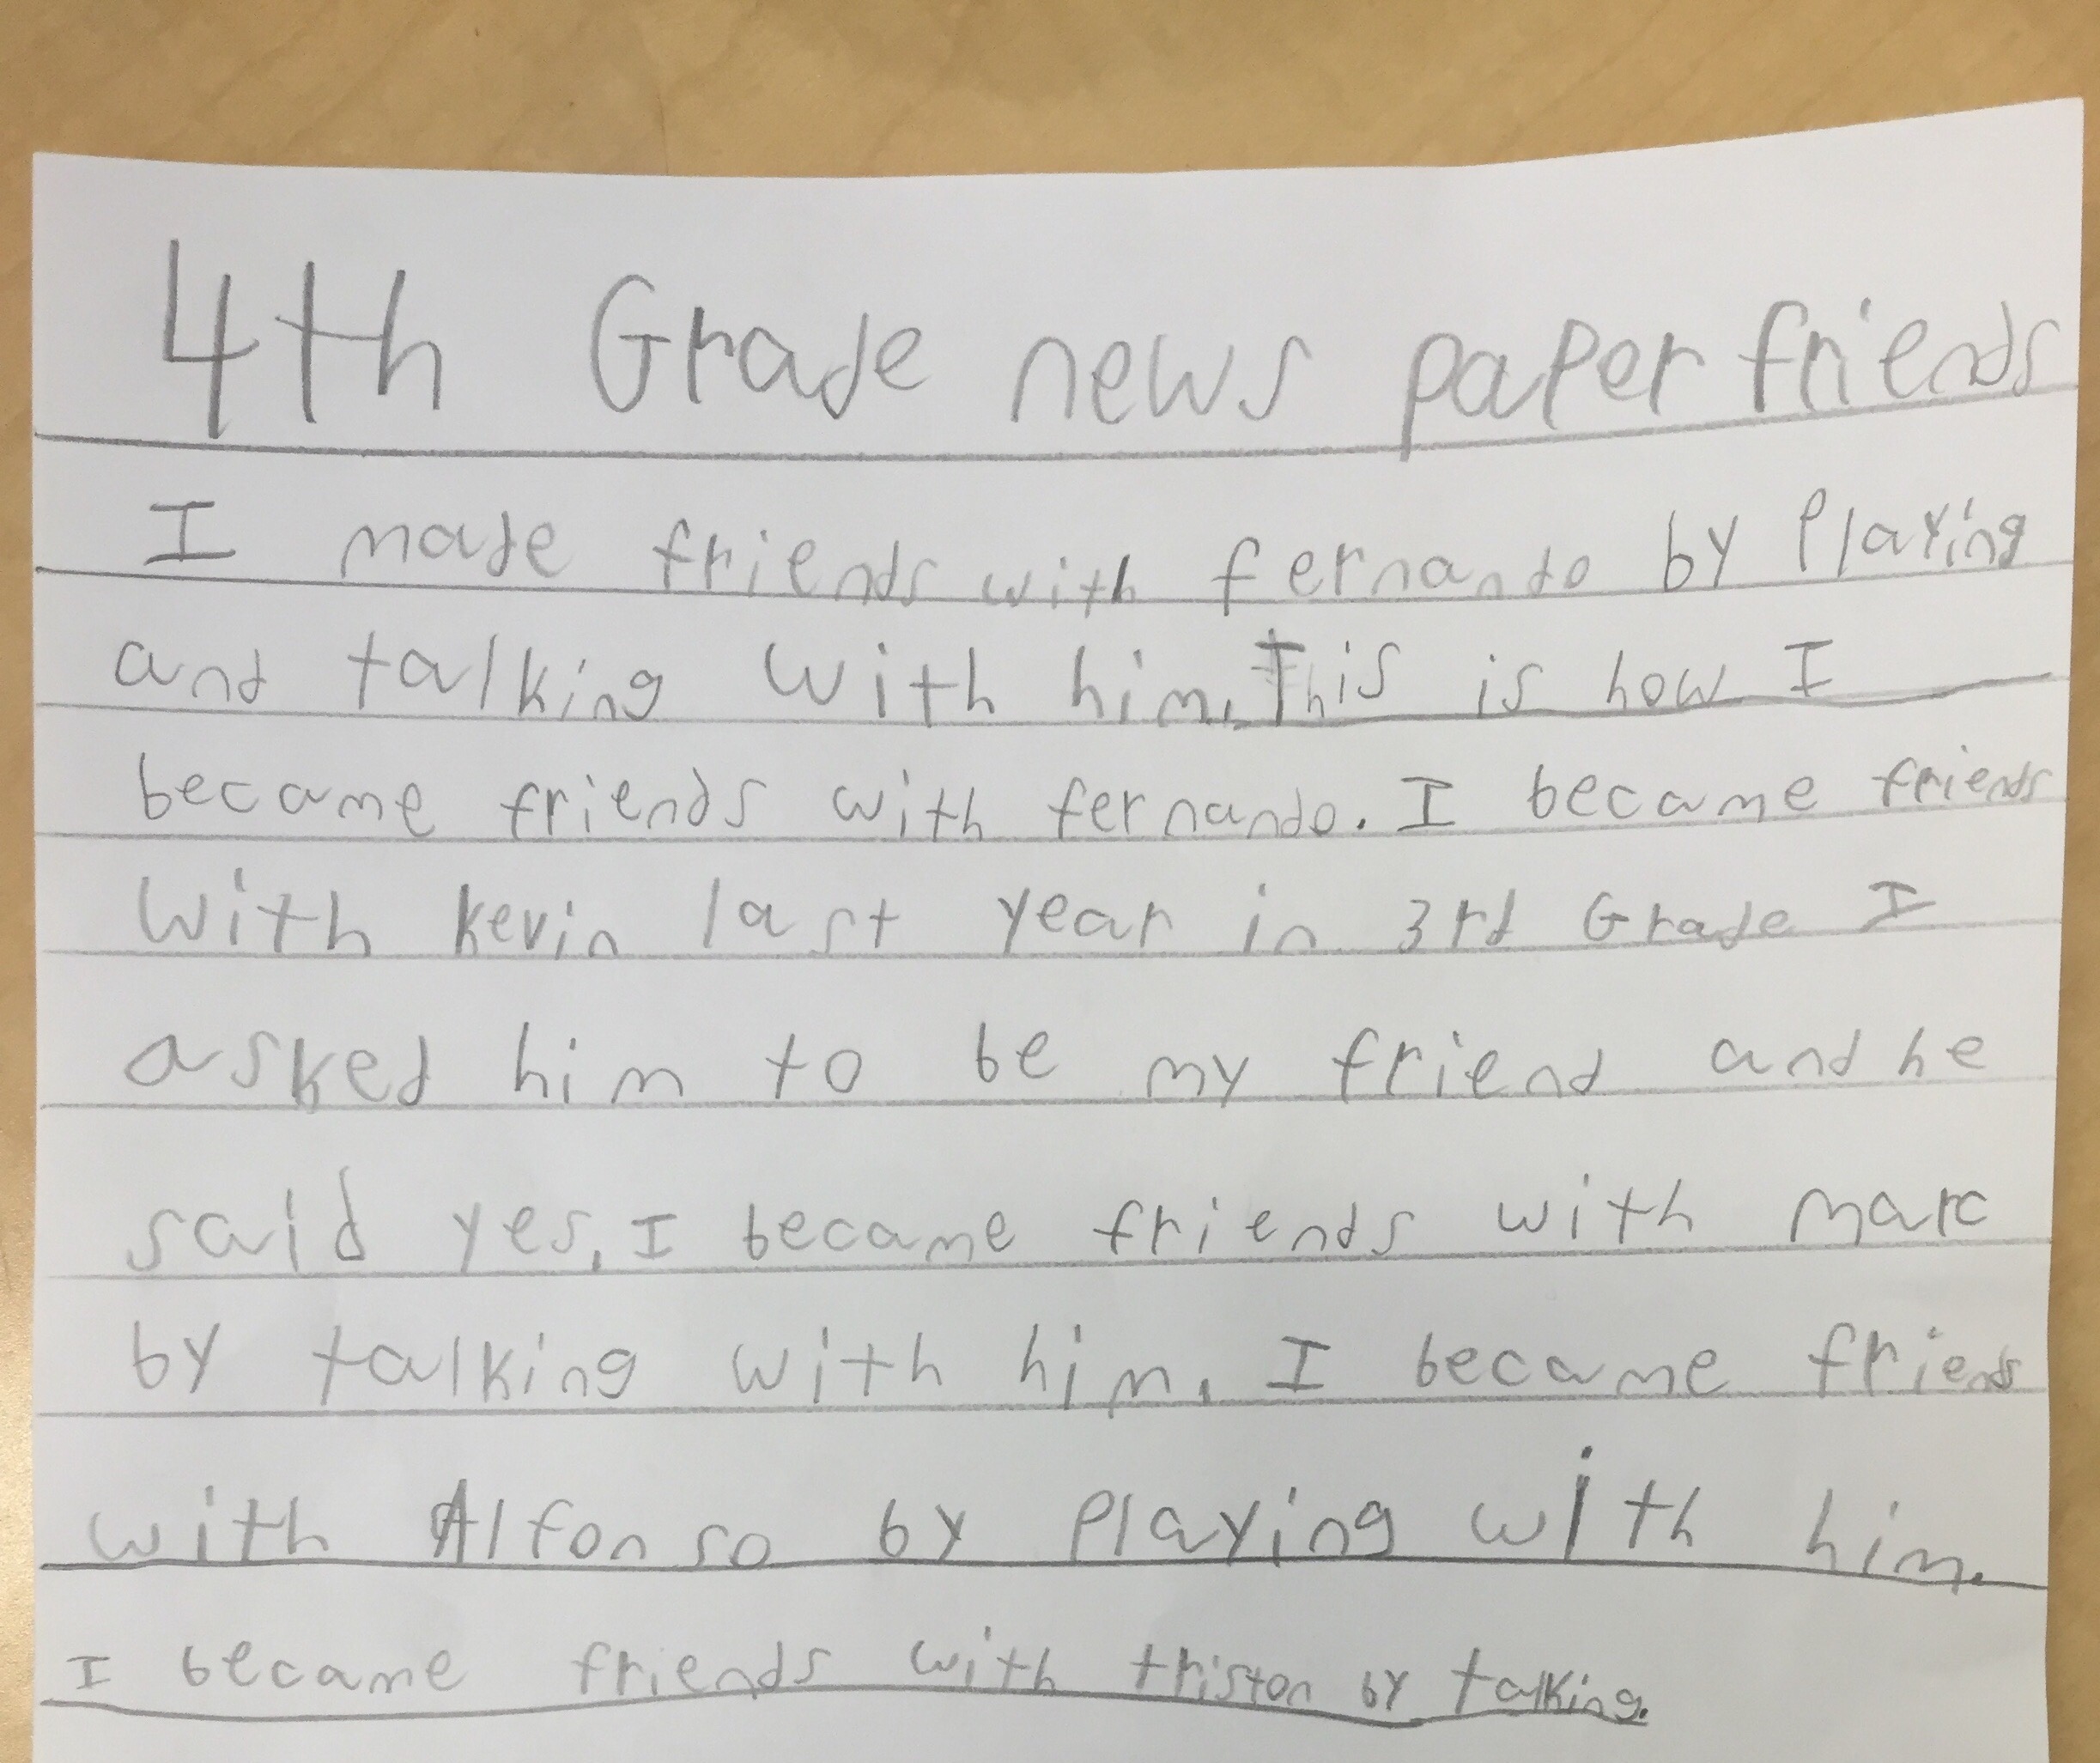 4th Grade news paper friends
I made friends with fernando by Playing
and talking with him. This is how I
became friends with fernando. I became friends
With kevin last year in 3rd Grade I
asked him to be my friend and he
said yes, I became friends with marc
by talking with him, I became friends
with Alfonso by Playing with him.
I became friends with triston by talking.